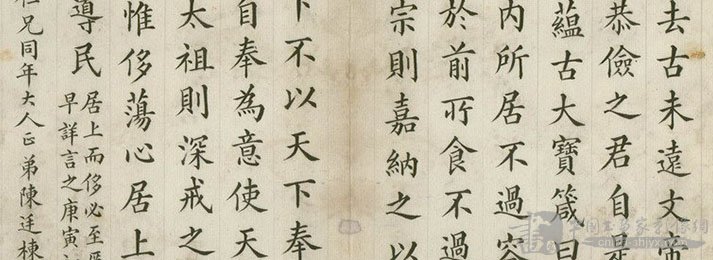 去古未遠文帝
恭儉之君自是
蘊古大寶箴曰
內所居不過容
於前所食不過
宗則嘉納之以
下不以天下奉
自奉為意使天
太祖則深戒之
惟侈蕩心居上
導民
居上而侈必至
早詳言之庚寅
仁兄同年大人正弟陳廷棟
書